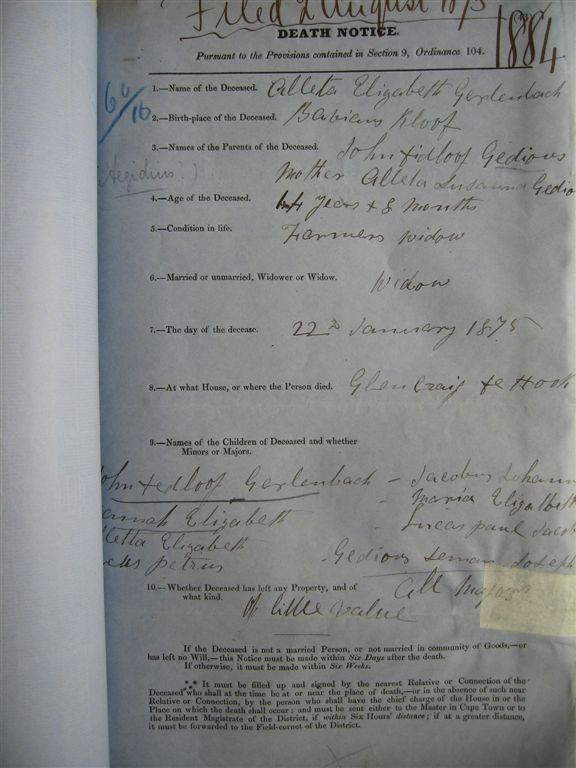 Filed 2 August 1875
1884
DEATH NOTICE.
Pursuant to the Provisions contained in Section 9, Ordinance 104.
60/16
1.—Name of the Deceased. Alleta Elizabeth Gerdenbach
2.—Birth-place of the Deceased. Babians Kloof
3.—Names of the Parents of the Deceased. John Gedious
(Aegidius.)
Mother Alleta Susanna Gedio
4.—Age of the Deceased. Years & 8 Months
5.—Condition in life. Farmers widow
6.—Married or unmarried, Widower or Widow. Widow
7.—The day of the decease. 22d January 1875
8.—At what House, or where the Person died. Glen Craig Hook
9.—Names of the Children of Deceased and whether
Minors or Majors.
Gerdenbach – Jacobus Johann
- Maria Elizabeth
Elizabeth - Lucas paul Jacob
Elizabeth
petrus - Gedious Joseph
10.—Whether Deceased has left any Property, and of
what kind. All Majors
Of little value
If the Deceased is not a married Person, or not married in community of Goods,—or
has left no Will,—this Notice must be made within Six Days after the death.
If otherwise, it must be made within Six Weeks.
*** It must be filled up and signed by the nearest Relative or Connection of the
Deceased who shall at the time be at or near the place of death,—or in the absence of such near
Relative or Connection, by the person who shall have the chief charge of the House in or the
Place on which the death shall occur; and must be sent either to the Master in Cape Town or to
the Resident Magistrate of the District, if within Six Hours' distance; if at a greater distance,
it must be forwarded to the Field-cornet of the District.